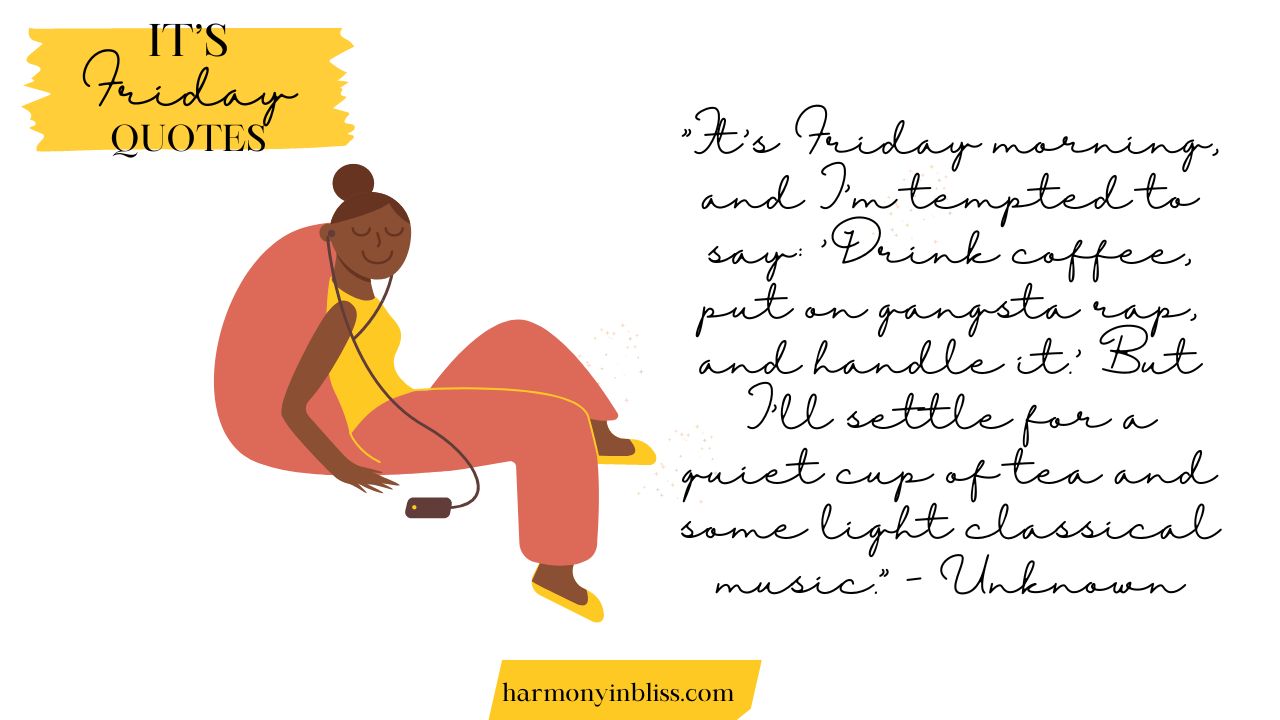 IT'S
Friday
QUOTES
"It's Friday morning,
and I'm tempted to
say: 'Drink coffee,
put on gangsta rap,
and handle it.' But
I'll settle for a
quiet cup of tea and
some light classical
music." - Unknown
harmonyinbliss.com